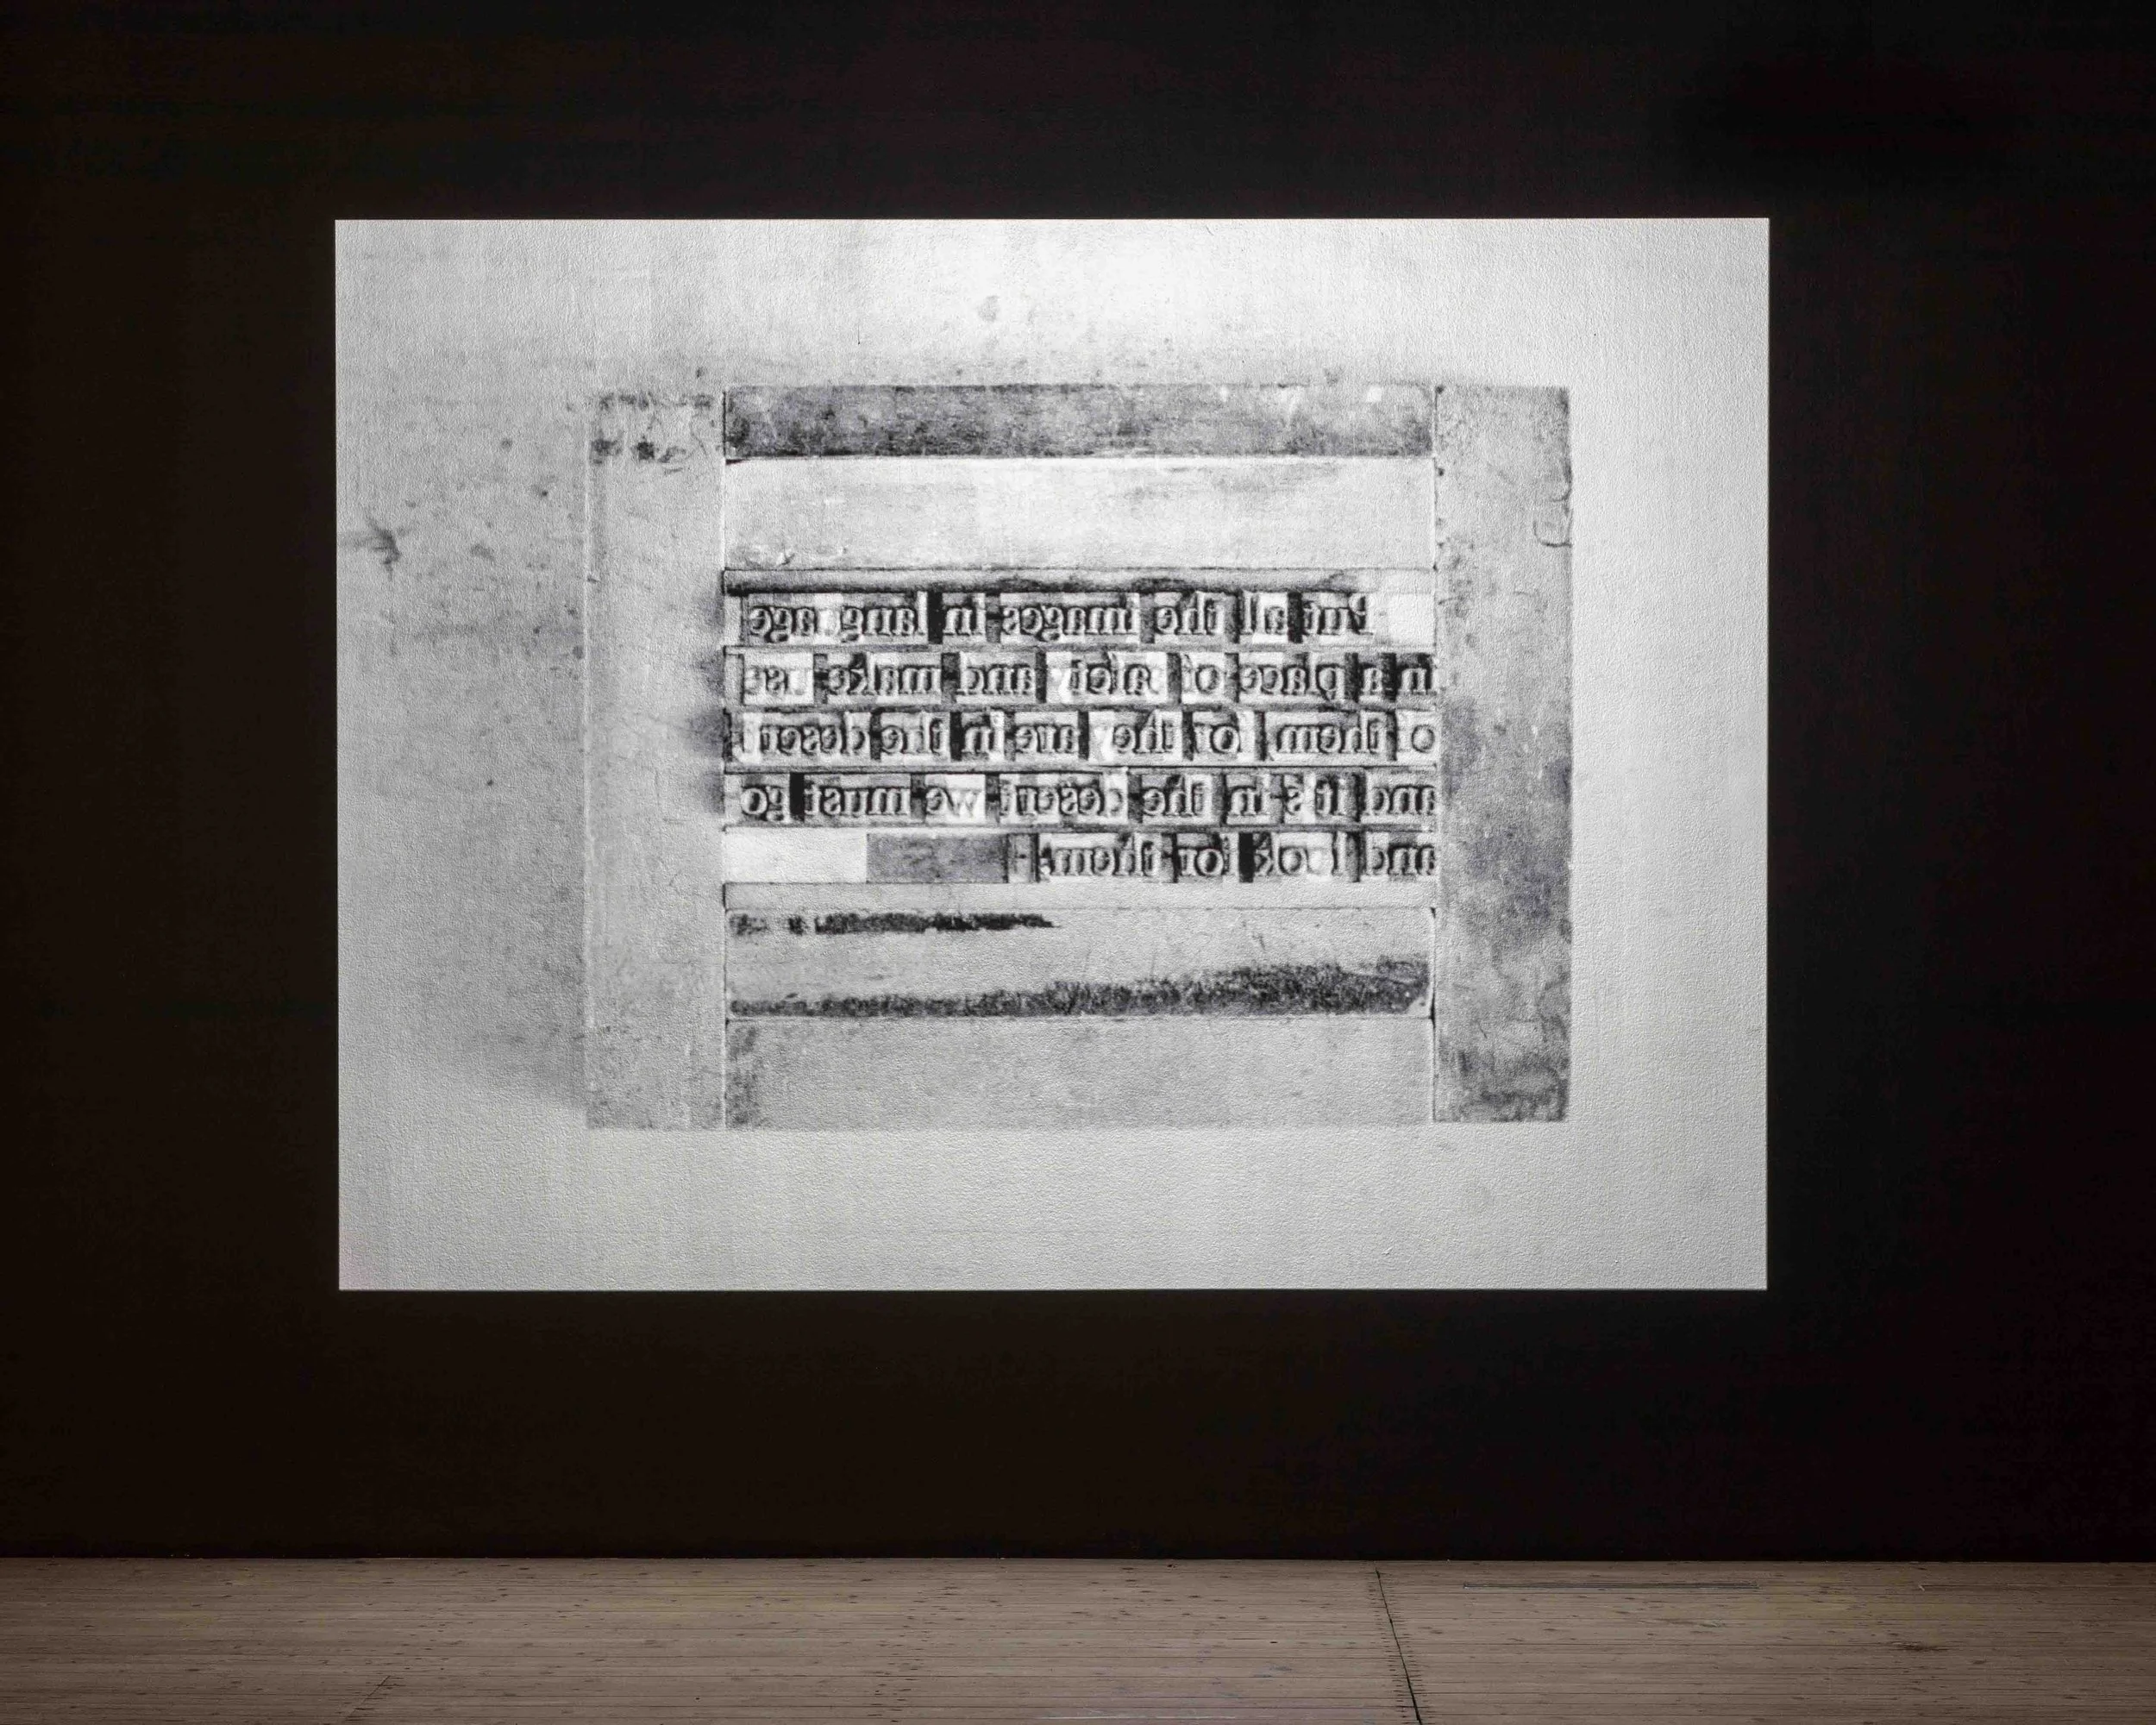 Put all the images in language
in a place of safety and make use
of them for they are in the desert
and it's in the desert we must go
and look for them.